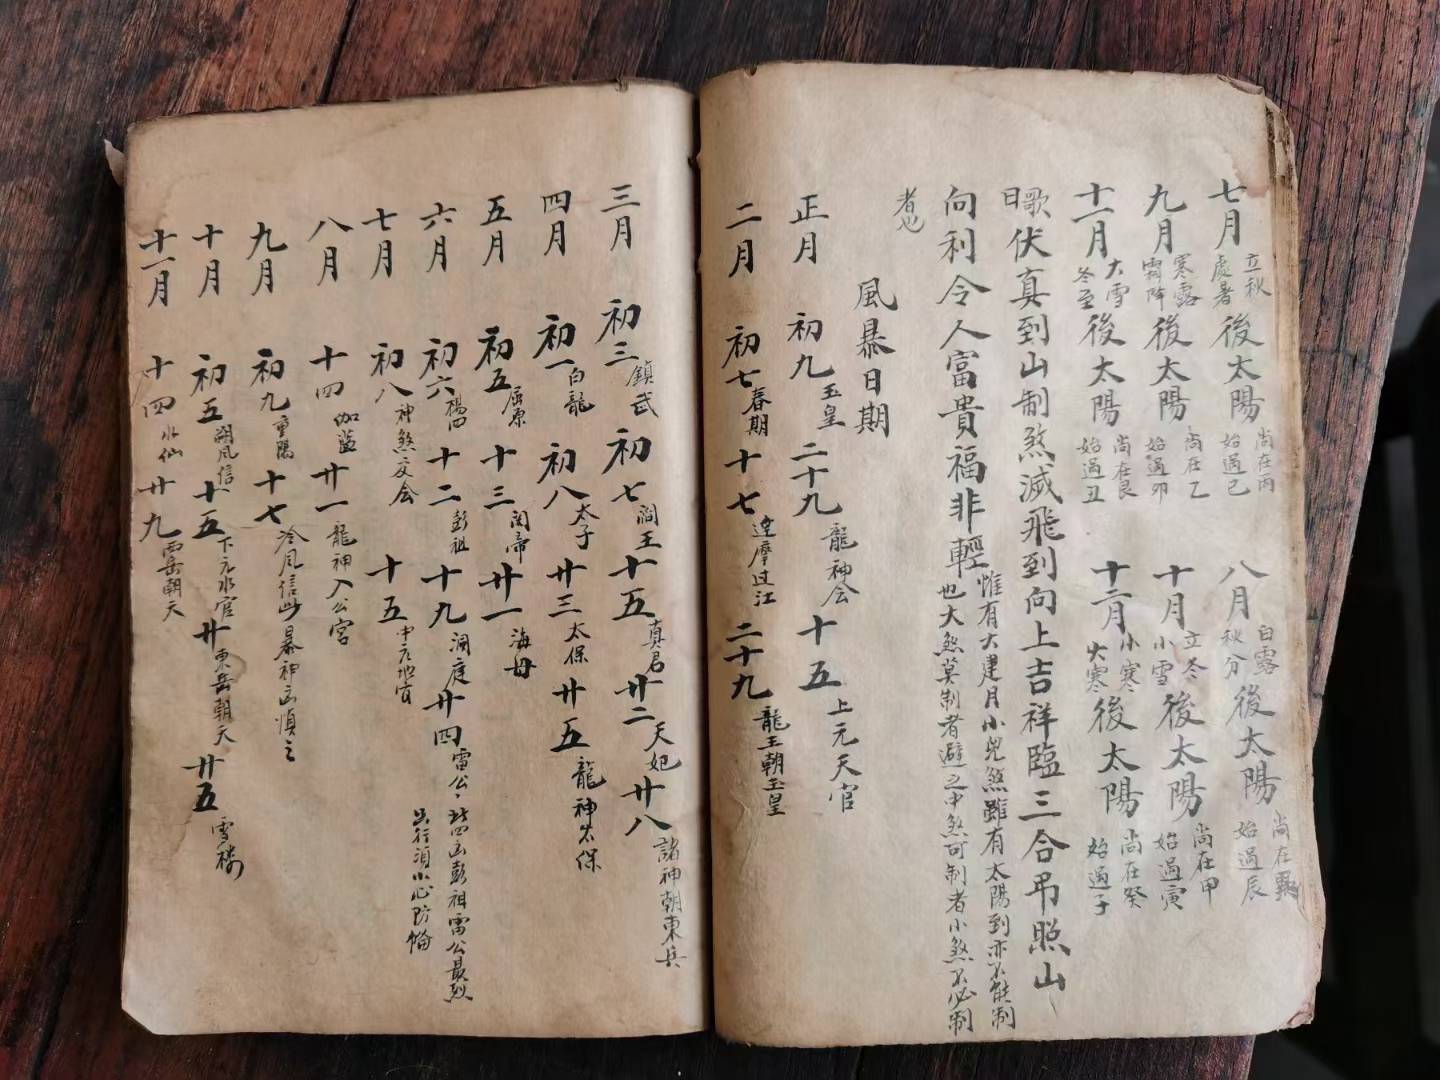 七月立秋處暑後太陽尚在丙始過巳 八月白露秋分後太陽尚在巽始過辰
九月寒露霜降後太陽尚在乙始過卯 十月立冬小雪後太陽尚在甲始過寅
十一月大雪冬至後太陽尚在艮始過丑 十二月小寒大寒後太陽尚在癸始過子
歌曰伏真到山制煞滅飛到向上吉祥臨三合吊照山
向利令人富貴福非輕惟有大建月小兇煞雖有太陽到亦不能制也大煞莫制者避之中煞可制者小煞不必制
者也
風暴日期
正月 初九玉皇 二十九龍神会 十五上元天官
二月 初七春期 十七達摩过江 二十九龍王朝玉皇
三月 初三鎮武 初七閻王 十五真君 廿二天妃 廿八諸神朝東兵
四月 初一白龍 初八太子 廿三太保 廿五龍神太保
五月 初五屈原 十三関帝 廿一海母
六月 初六楊 十二彭祖 十九洞庭 廿四雷公此四凶彭祖雷公最烈出行須小心防
七月 初八神煞交会 十五中元地官
八月 十四伽藍 廿一龍神入公宮
九月 初九重陽 十七冷风信此暴神凶慎之
十月 初五朔风信 十五下元水官 廿東岳朝天 廿五雪
十一月 十四水仙 廿九西岳朝天